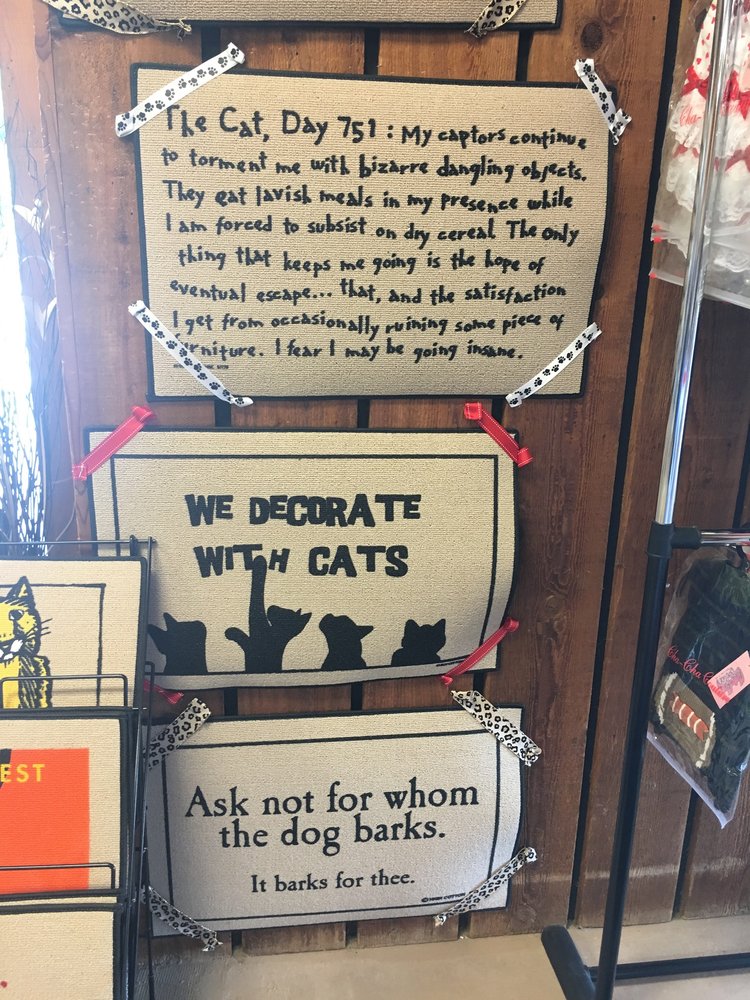 The Cat, Day 751 : My captors continue
to torment me with bizarre dangling objects.
They eat lavish meals in my presence while
I am forced to subsist on dry cereal. The only
thing that keeps me going is the hope of
eventual escape... that, and the satisfaction
I get from occasionally ruining some piece of
furniture. I fear I may be going insane.
WE DECORATE
WITH CATS
Ask not for whom
the dog barks.
It barks for thee.
EST
Cha-Cha